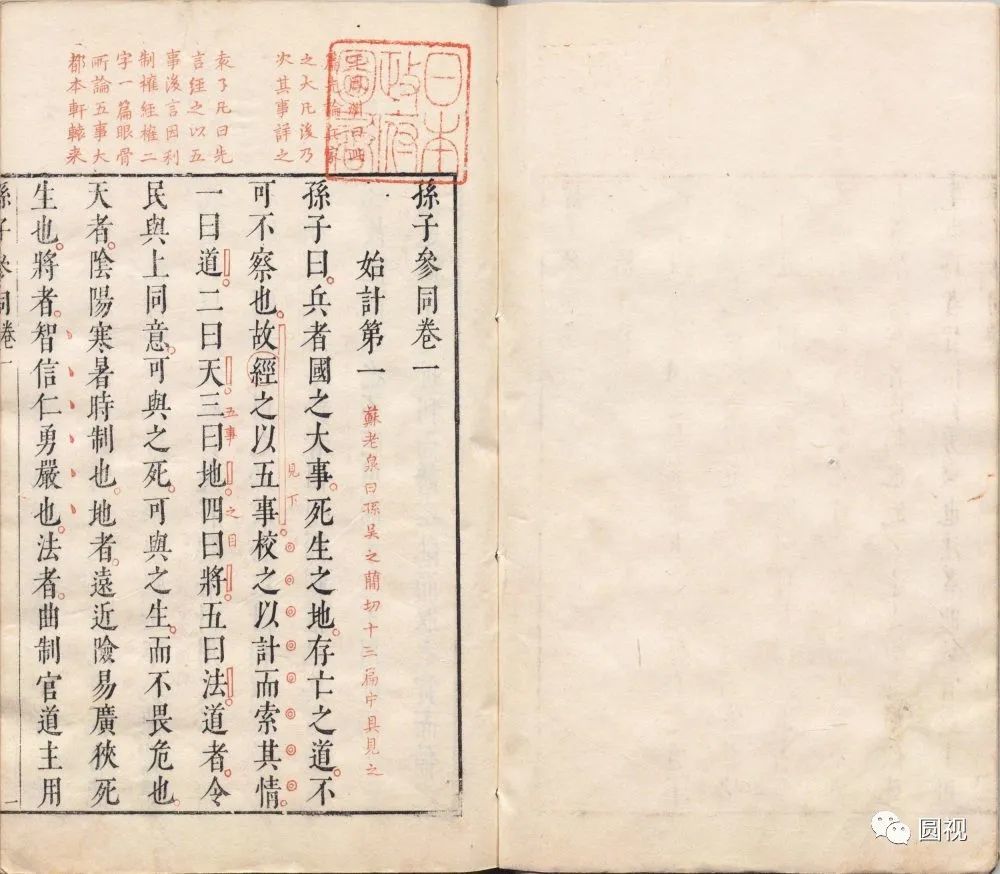 日本
政府
圖書
王鳳洲曰此
篇先論兵家
之大凡後乃
次其事詳之
袁了凡曰先
言經之以五
事後言因利
制權經權二
字一篇眼骨
所論五事大
都本軒轅來
孫子參同卷一
始計第一
蘇老泉曰孫吳之簡切十三篇中具見之
孫子曰。兵者國之大事。死生之地。存亡之道。不
可不察也。故經之以五事。校之以計而索其情。
見下
一曰道。二曰天。三曰地。四曰將。五曰法。道者。令
五事之目
民與上同意。可與之死。可與之生。而不畏危也。
天者。陰陽寒暑時制也。地者。遠近險易廣狹死
生也。將者。智信仁勇嚴也。法者。曲制官道主用
孫子參同卷一
一
圆视